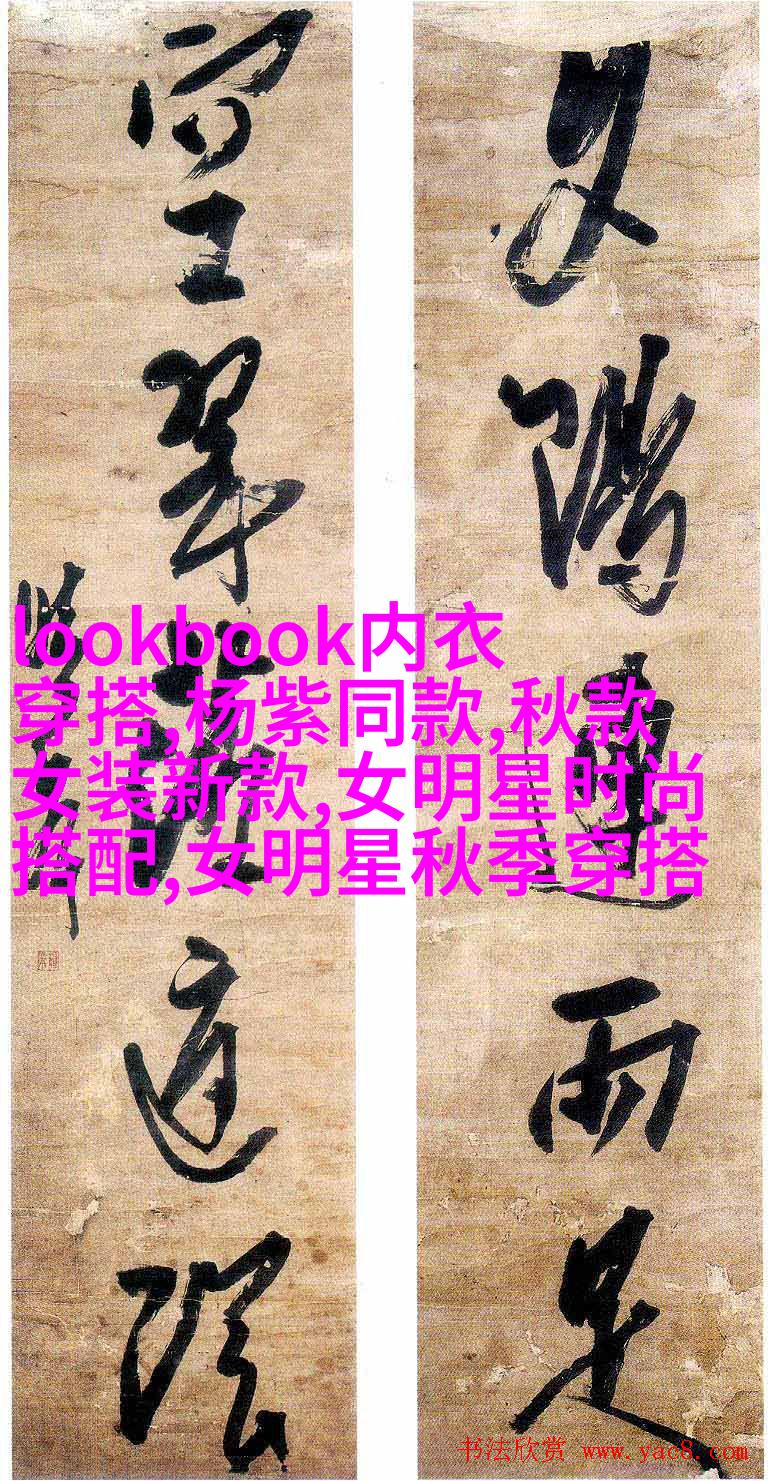 夕陽連雨足
空翠落庭陰
lookbook内衣
穿搭,杨紫同款,秋款
女装新款,女明星时尚
搭配,女明星秋季穿搭
书法欣赏 www.yac8.com